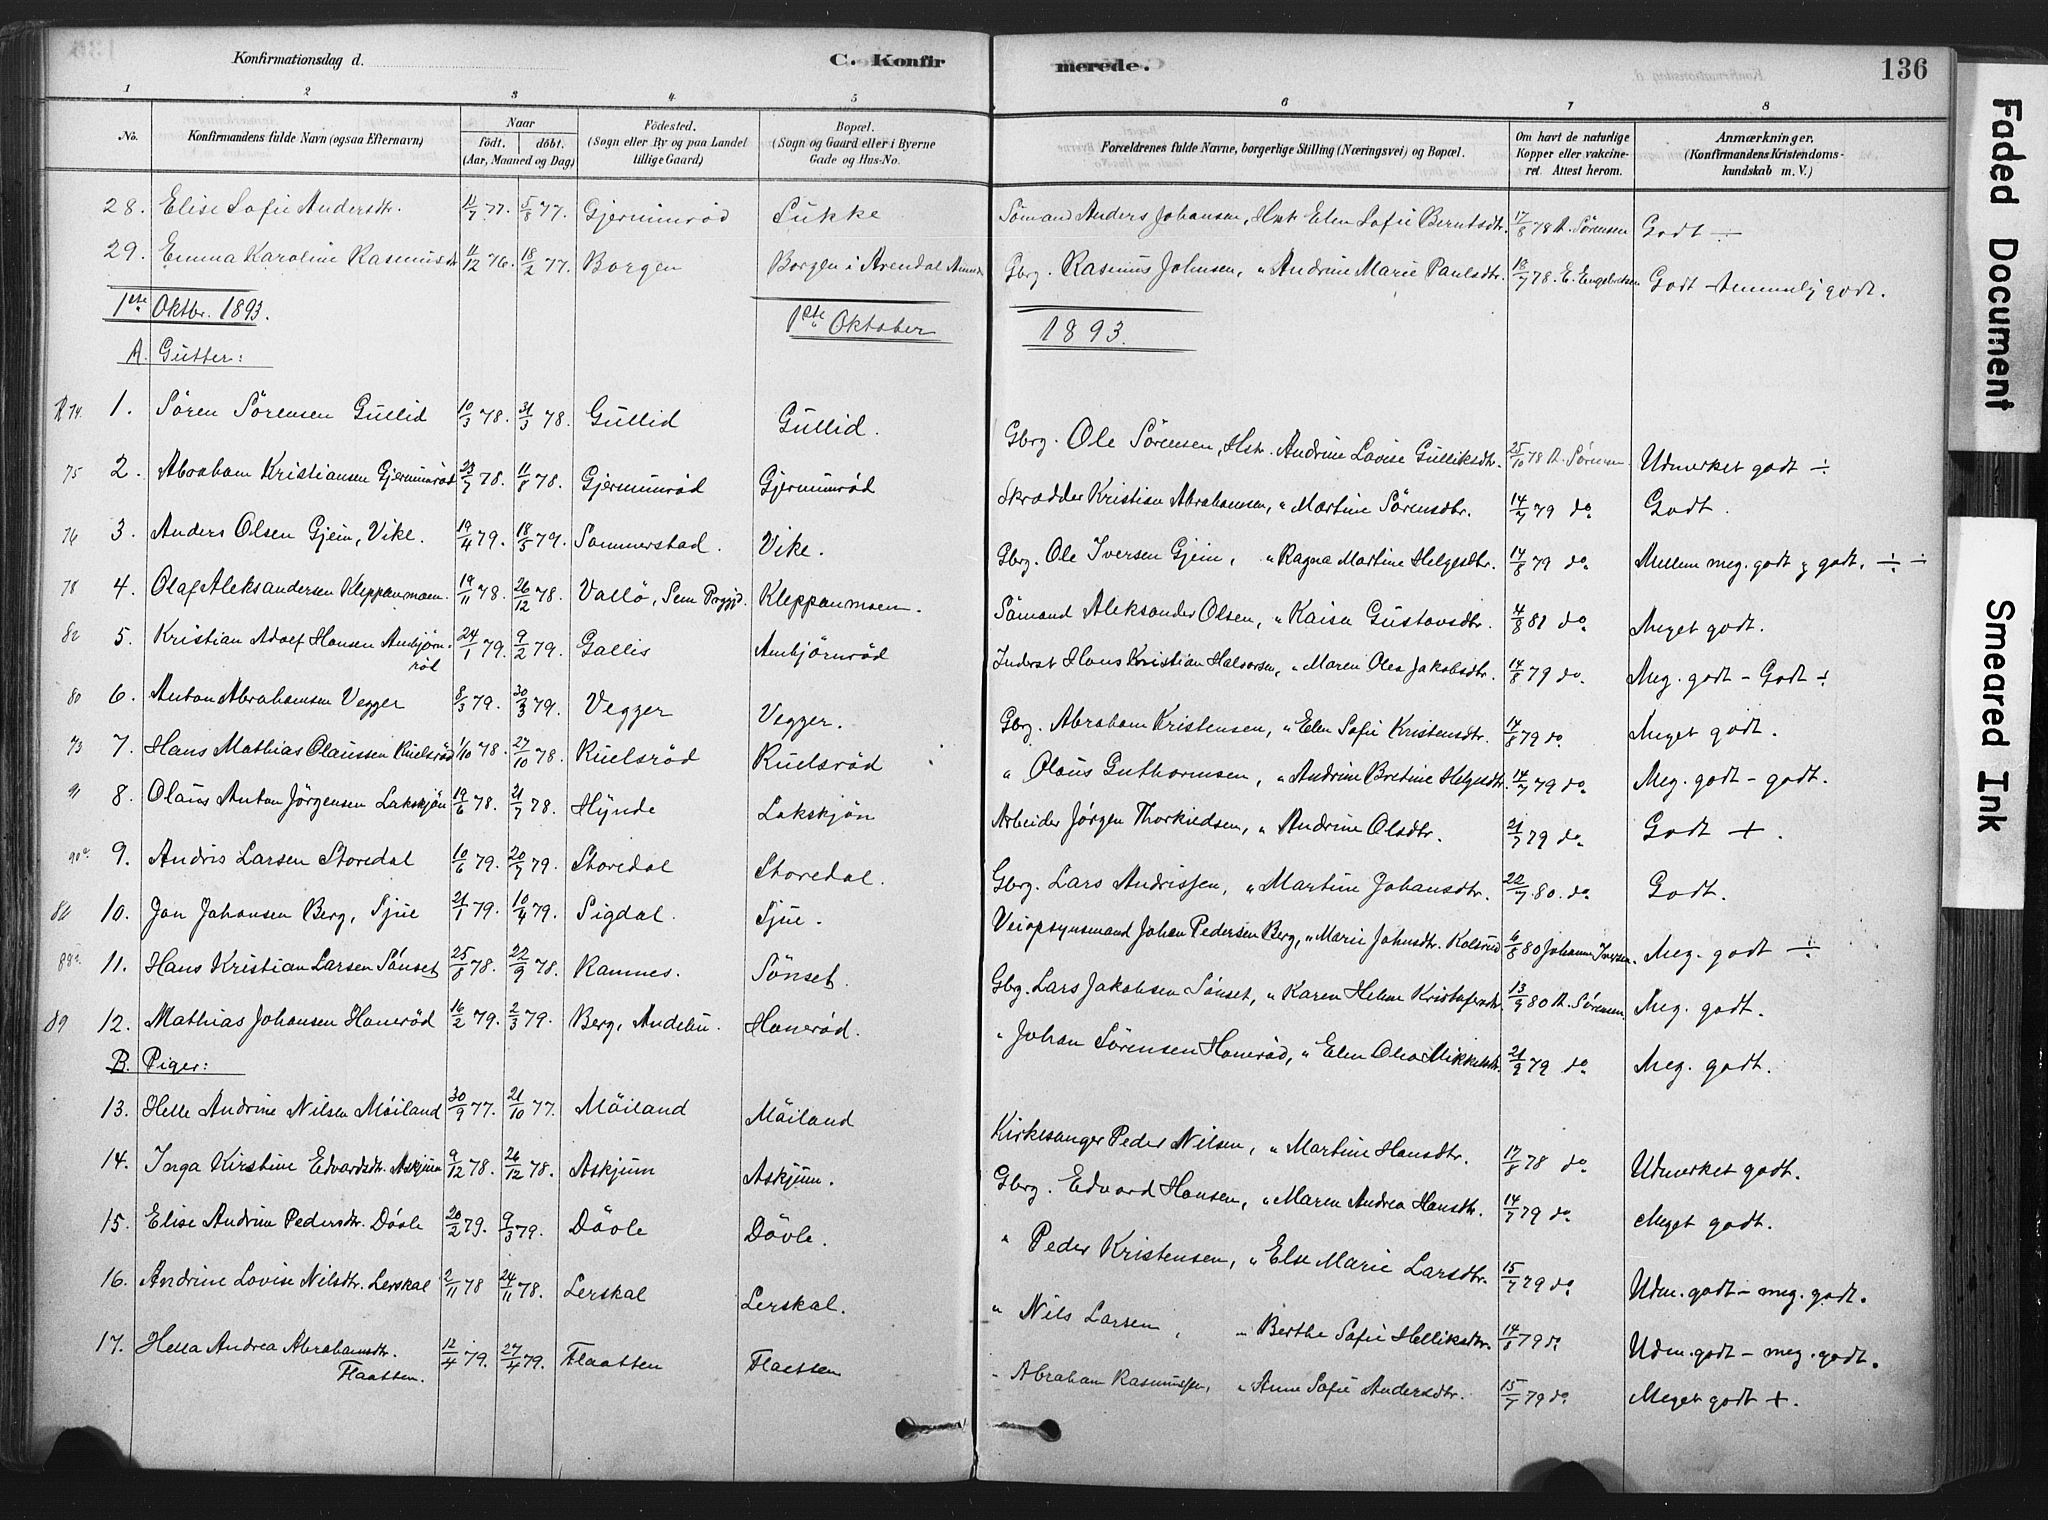 Konfirmationsdag d. C. Konfirmerede. 136
1 2 3 4 5 6 7 8
No. Konfirmandens fulde Navn (ogsaa Efternavn) Naar födt. döbt. (Aar, Maaned og Dag) Födested. (Sogn eller By og paa Landet tillige Gaard) Bopæl. (Sogn og Gaard eller i Byerne Gade og Hus-No. Forældrenes fulde Navne, borgerlige Stilling (Næringsvei) og Bopæl. Om havt de naturlige Kopper eller vakcineret. Attest herom. Anmærkninger, (Konfirmandens Kristendomskundskab m. V.)
28. Elise Sofie Andersdtr. 11/7 77. 5/8 77. Gjermunröd Sukke Sömand Anders Johansen, Hst Elen Sofie Berntsdtr. 17/8 78 A. Sörensen Godt ÷
29. Emma Karoline Rasmusdtr 11/12 76. 18/2 77. Borgen Borgen i Arendal Gbrg. Rasmus Johnsen, " Andrine Marie Paulsdtr. 18/7 78. E. Engebretsen Godt - temmelig godt.
1ste Oktbr. 1893. 1ste Oktober 1893.
A. Gutter:
74. 1. Sören Sörensen Gullid 10/3 78. 31/3 78. Gullid Gullid. Gbrg. Ole Sörensen, Hst. Andrine Lovise Gulliksdtr. 25/10 78 A. Sörensen. Udmerket godt ÷
75 2. Abraham Kristiansen Gjermunröd 23/7 78. 11/8 78. Gjermunröd Gjermunröd Skrædder Kristian Abrahamsen, " Martine Sörensdtr. 14/7 79 do. Godt.
76 3. Anders Olsen Gjein, Vike. 19/4 79. 18/5 79. Sommerstad. Vike. Gbrg. Ole Iversen Gjein, " Ragna Martine Helgesdtr. 14/8 79 do. Mellem meg. godt og godt. ÷ ÷
78 4. Olaf Aleksandersen Kleppanmoen. 19/11 78. 26/12 78. Vallö, Sem Prgjd. Kleppanmoen. Sömand Aleksander Olsen, " Kaisa Gustavsdtr. 4/8 81 do. Meget godt.
82 5. Kristian Adolf Hansen Anbjörnröd 24/1 79. 9/2 79. Gallis Anbjörnröd Inderst Hans Kristian Halvorsen, " Maren Olea Jakobsdtr. 14/8 79 do. Meg. godt - Godt ÷
80 6. Anton Abrahamsen Vegger 8/3 79. 30/3 79. Vegger Vegger. Gbrg. Abraham Kristensen, " Elen Sofie Kristensdtr. 14/8 79 do. Meget godt.
73 7. Hans Mathias Olaussen Ruelsröd 1/10 78. 27/10 78. Ruelsröd Ruelsröd " Olaus Guthormsen, " Andrine Bretine Helgesdtr. 14/7 79 do. Meg. godt - godt.
91 8. Olaus Anton Jörgensen Lakskjön 19/6 78. 21/7 78. Hynde Lakskjön Arbeider Jörgen Thorkildsen, " Andrine Olsdtr. 21/7 79 do. Godt +.
90a 9. Andris Larsen Storedal 10/6 79. 20/7 79. Storedal Storedal. Gbrg. Lars Andrissen, " Martine Johansdtr. 22/7 80. do. Godt.
10. Jon Johansen Berg, Sjue 21/1 79. 10/4 79. Sigdal. Sjue. Veiopsynsmand Johan Pedersen Berg, " Marie Johnsdtr. Kolsrud 6/8 80 Johannes Iversen. Meg. godt ÷
88a. 11. Hans Kristian Larsen Sönset 25/8 78. 22/9 78. Ramnes. Sönset. Gbrg. Lars Jakobsen Sönset, " Karen Helene Kristofersdtr 13/9 80 A. Sörensen. Meg. godt.
89 12. Mathias Johansen Haneröd 16/2 79. 2/3 79. Berg, Andebu. Haneröd. " Johan Sörensen Haneröd, " Elen Olea Mikkelsdtr. 21/9 79 do. Meg. godt.
B. Piger:
13. Helle Andrine Nilsen Möiland 30/9 77. 21/10 77. Möiland Möiland Kirkesanger Peder Nilsen, " Martine Hansdtr. 17/8 78 do. Udmerket godt.
14. Inga Kirstine Edvardsdtr. Askjum 9/12 78. 26/12 78. Askjum Askjum. Gbrg. Edvard Hansen, " Maren Andrea Hansdtr. 14/7 79 do. Meget godt.
15. Elise Andrine Pedersdtr. Dövle 20/2 79. 9/3 79. Dövle Dövle. " Peder Kristensen, " Else Marie Larsdtr. 15/7 79 do. Udm. godt - meg. godt.
16. Andrine Lovise Nilsdtr. Lerskal 2/11 78 24/11 78. Lerskal Lerskal. " Nils Larsen, " Berthe Sofie Helliksdtr. 14/8 79 do Udm. godt - meg. godt.
17. Hella Andrea Abrahamsdtr. Flaatten. 12/4 79. 27/4 79. Flaatten Flaatten " Abraham Rasmussen, " Anne Sofie Andersdtr. 15/7 79 do. Meget godt +.
Faded Document
Smeared Ink